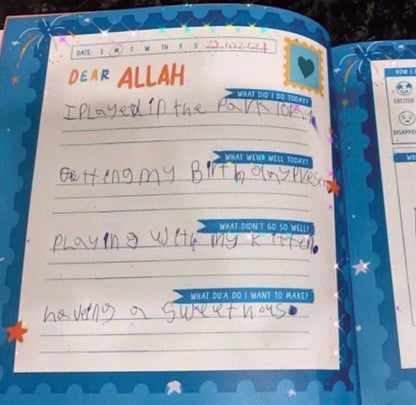 DATE: S M T W T H F S 22.02.21
DEAR ALLAH
WHAT DID I DO TODAY?
I Played in the Park today
WHAT WENT WELL TODAY?
Getting my Birthday Presen
WHAT DIDN'T GO SO WELL?
Playing with my kitten.
WHAT DU'A DO I WANT TO MAKE?
having a sweet hous
HOW
EXCITED
DISAPPO